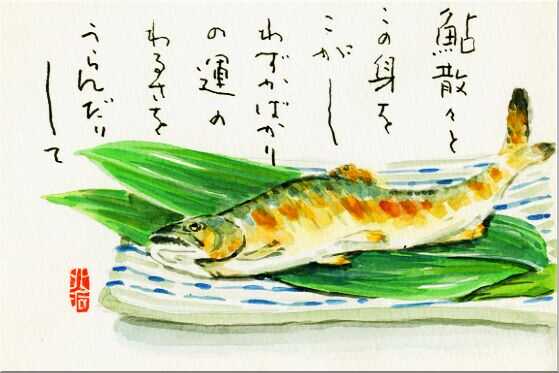 鮎散々と
この身を
こがし
わずかばかり
の運の
わるさを
うらんだり
して